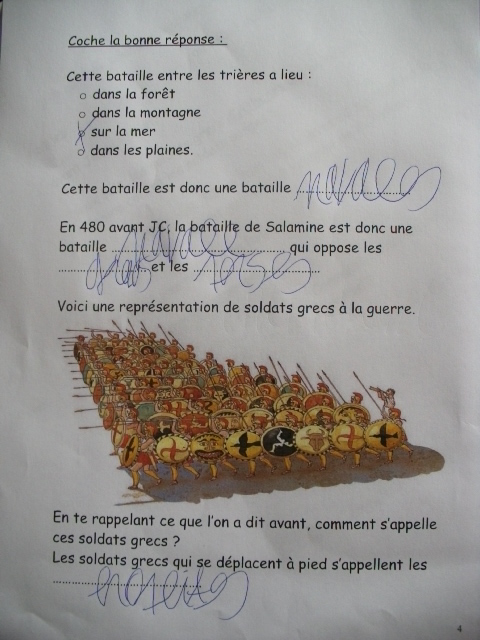 Coche la bonne réponse :
Cette bataille entre les trières a lieu :
o dans la forêt
o dans la montagne
o sur la mer
o dans les plaines.
Cette bataille est donc une bataille navales
En 480 avant JC, la bataille de Salamine est donc une
bataille navale qui oppose les
grecs et les perses
Voici une représentation de soldats grecs à la guerre.
En te rappelant ce que l'on a dit avant, comment s'appelle
ces soldats grecs ?
Les soldats grecs qui se déplacent à pied s'appellent les
4